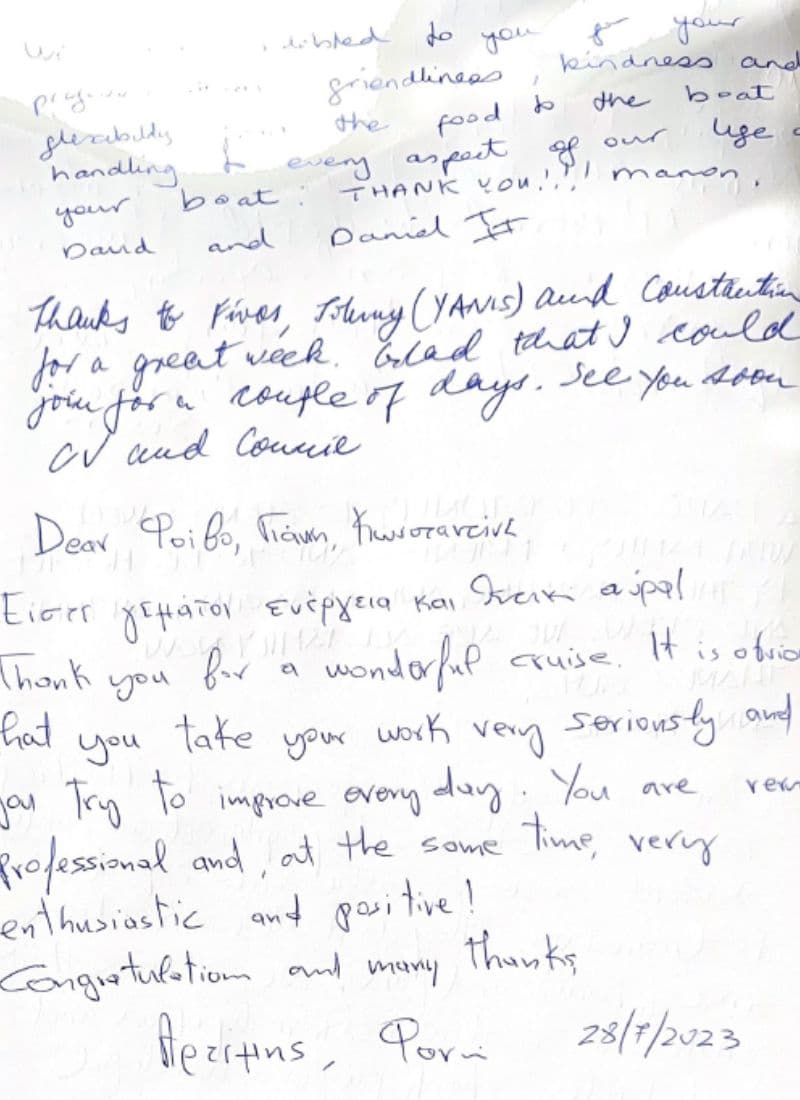 to you for your
friendliness, kindness and
flexibility the food to the boat
handling & every aspect of our use
your boat. THANK YOU!!! manon.
David and Daniel II
Thanks to Fivos, Johnny (YANIS) and Constantin
for a great week. Glad that I could
join for a couple of days. See you soon
CV and Connie
Dear Φοίβο, Γιάννη, Κωνσταντίνε
Είστε γεμάτοι ενέργεια και θετική αύρα!
Thank you for a wonderful cruise. It is obvio
hat you take your work very seriously and
you try to improve every day. You are very
professional and, at the same time, very
enthusiastic and positive!
Congratulation and many thanks,
28/7/2023